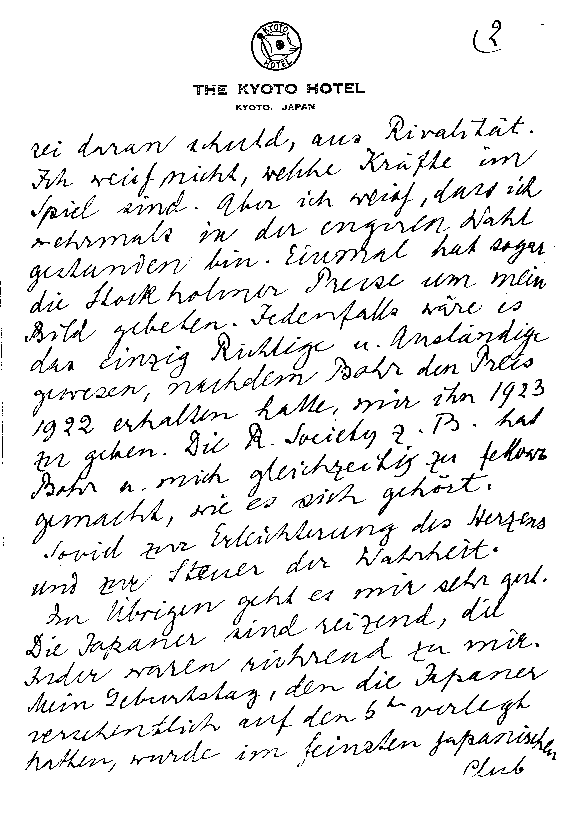 (2
KYOTO
HOTEL
THE KYOTO HOTEL
KYOTO, JAPAN
sei daran schuld, aus Rivalität.
Ich weiß nicht, welche Kräfte im
Spiel sind. Aber ich weiß, dass ich
mehrmals in der engeren Wahl
gestanden bin. Einmal hat sogar
die Stockholmer Presse um mein
Bild gebeten. Jedenfalls wäre es
das einzig Richtige u. Anständige
gewesen, nachdem Bohr den Preis
1922 erhalten hatte, mir ihn 1923
zu geben. Die R. Society z. B. hat
Bohr u. mich gleichzeitig zu fellows
gemacht, wie es sich gehört.
Soviel zur Erleichterung des Herzens
und zur Steuer der Wahrheit.
Im Übrigen geht es mir sehr gut.
Die Japaner sind reizend, die
Inder waren rührend zu mir.
Mein Geburtstag, den die Japaner
versehentlich auf den 5ten verlegt
hatten, wurde im feinsten japanischen
Club